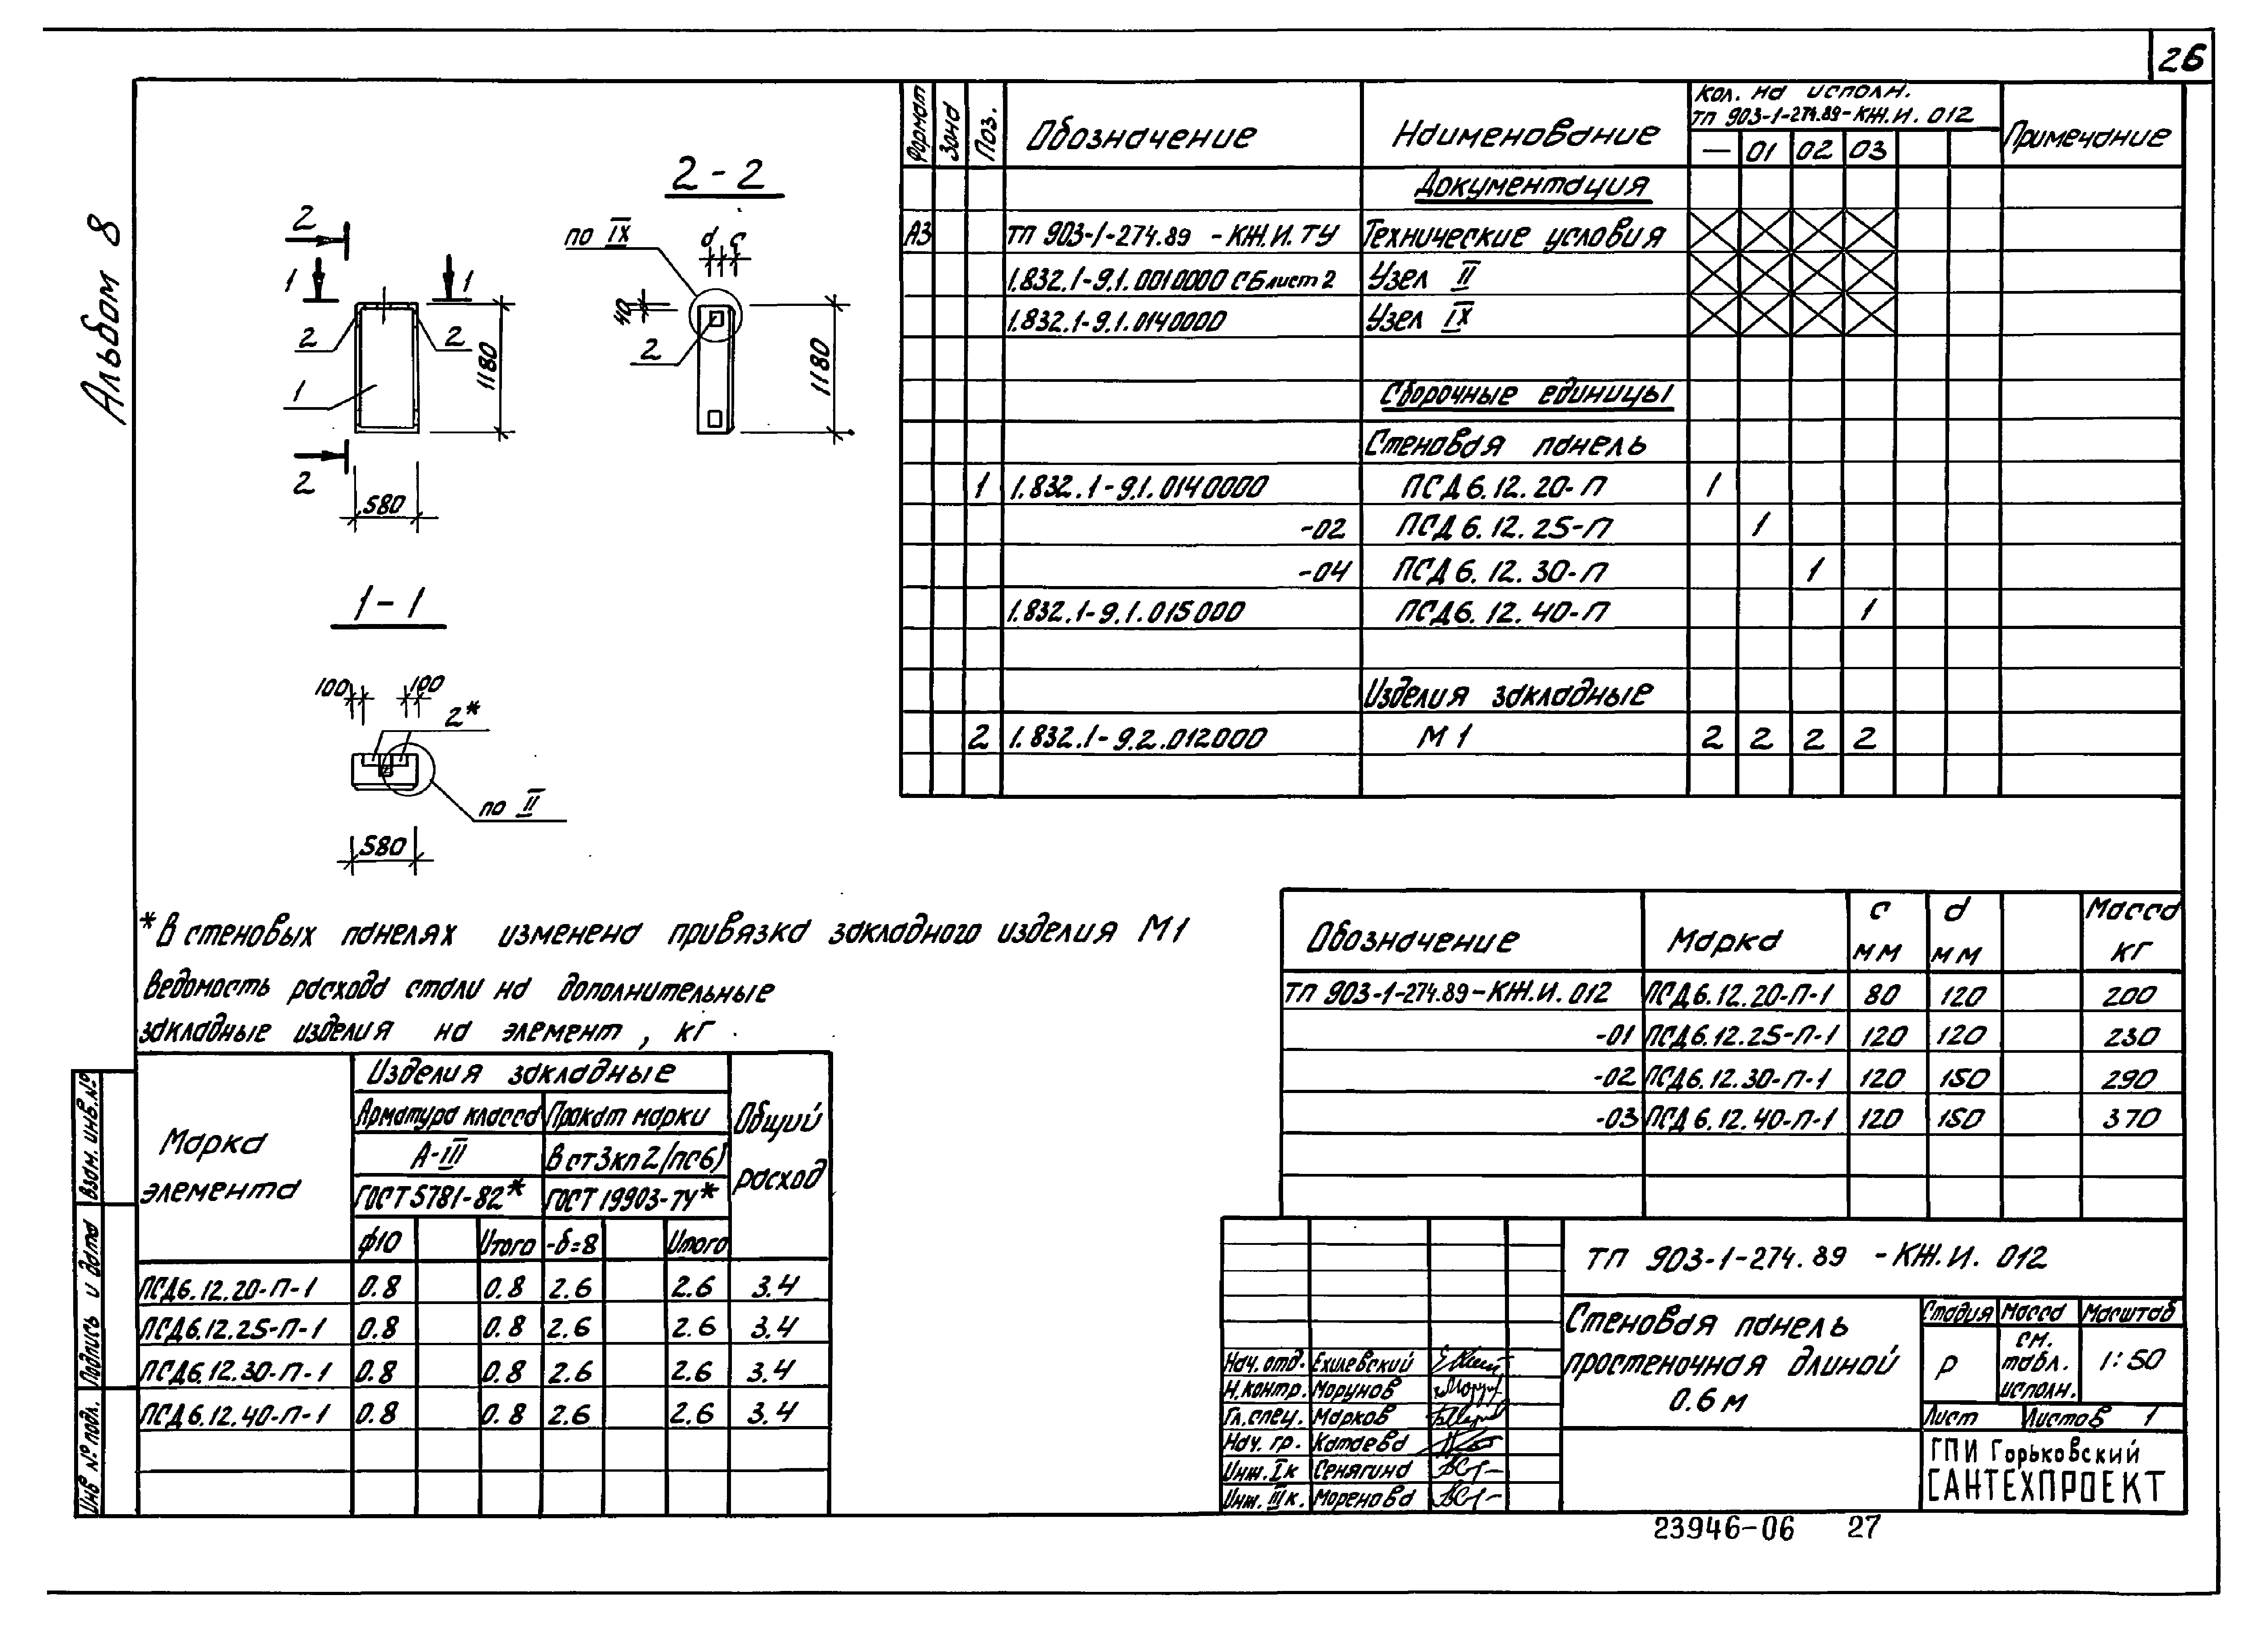 26
Альбом 8
2-2
2
1
1
2
2
1
1180
2
580
по IX
d c
40
2
1180
1-1
100
100
2*
по II
580
Формат Зона Поз. Обозначение Наименование Кол. на исполн. Примечание
ТП 903-1-274.89-КЖ.И. 012
— 01 02 03
Документация
А3 ТП 903-1-274.89 -КЖ.И.ТУ Технические условия
1.832.1-9.1.0010000 СБ лист 2 Узел II
1.832.1-9.1.0140000 Узел IX
Сборочные единицы
Стеновая панель
1 1.832.1-9.1.0140000 ПСД 6.12.20-П 1
-02 ПСД 6.12.25-П 1
-04 ПСД 6.12.30-П 1
1.832.1-9.1.015000 ПСД6.12.40-П 1
Изделия закладные
2 1.832.1-9.2.012000 М 1 2 2 2 2
* В стеновых панелях изменена привязка закладного изделия М1
Ведомость расхода стали на дополнительные
закладные изделия на элемент, кг
Марка элемента Изделия закладные Общий расход
Арматура класса Прокат марки
А-III Вст3кп2(пс6)
ГОСТ 5781-82* ГОСТ 19903-74*
ф10 Итого -δ=8 Итого
ПСД6.12.20-П-1 0.8 0.8 2.6 2.6 3.4
ПСД6.12.25-П-1 0.8 0.8 2.6 2.6 3.4
ПСД6.12.30-П-1 0.8 0.8 2.6 2.6 3.4
ПСД6.12.40-П-1 0.8 0.8 2.6 2.6 3.4
Обозначение Марка c мм d мм Масса кг
ТП 903-1-274.89-КЖ.И. 012 ПСД6.12.20-П-1 80 120 200
-01 ПСД6.12.25-П-1 120 120 230
-02 ПСД6.12.30-П-1 120 150 290
-03 ПСД6.12.40-П-1 120 150 370
ТП 903-1-274.89 -КЖ.И. 012
Стеновая панель
простеночная длиной
0.6 м
Стадия Масса Масштаб
Р см. табл. исполн. 1:50
Лист Листов 1
ГПИ Горьковский
САНТЕХПРОЕКТ
Нач. отд. Ехилевский
Н.контр. Морунов
Гл.спец. Марков
Нач. гр. Катаева
Инж. I к Сенягина
Инж. III к. Моренова
Взам. инв.№
Подпись и дата
Инв № подл.
23946-06 27